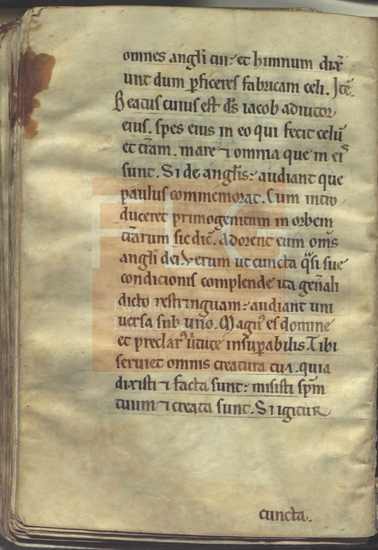 omnes angli tui: et himnum dixer̄
unt dum ꝑficeres fabricam celi. Itē.
Beatus cuius est ds̄ iacob adiutor
eius. spes eius in eo qui fecit celū
et t̄ram. mare ⁊ omnia que in eis
sunt. Si de angl̄is: audiant que
paulus commemorat. Cum intro
duceret primogenitum in orbem
t̄rarum sic dic̄. Adorent eum om̄s
angli dei. Verum ut cuncta q̄si sue
condicionis complende ita gen̄ali
dicto restringuam: audiant uni
uersa sub uno. Magnꝰ es domine
et preclarꝰ uirtute insuꝑabilis. Tibi
seruiet omnis creatura tua. quia
dixisti ⁊ facta sunt: misisti sp̄m
tuum ⁊ creata sunt. Si igitur
cuncta.